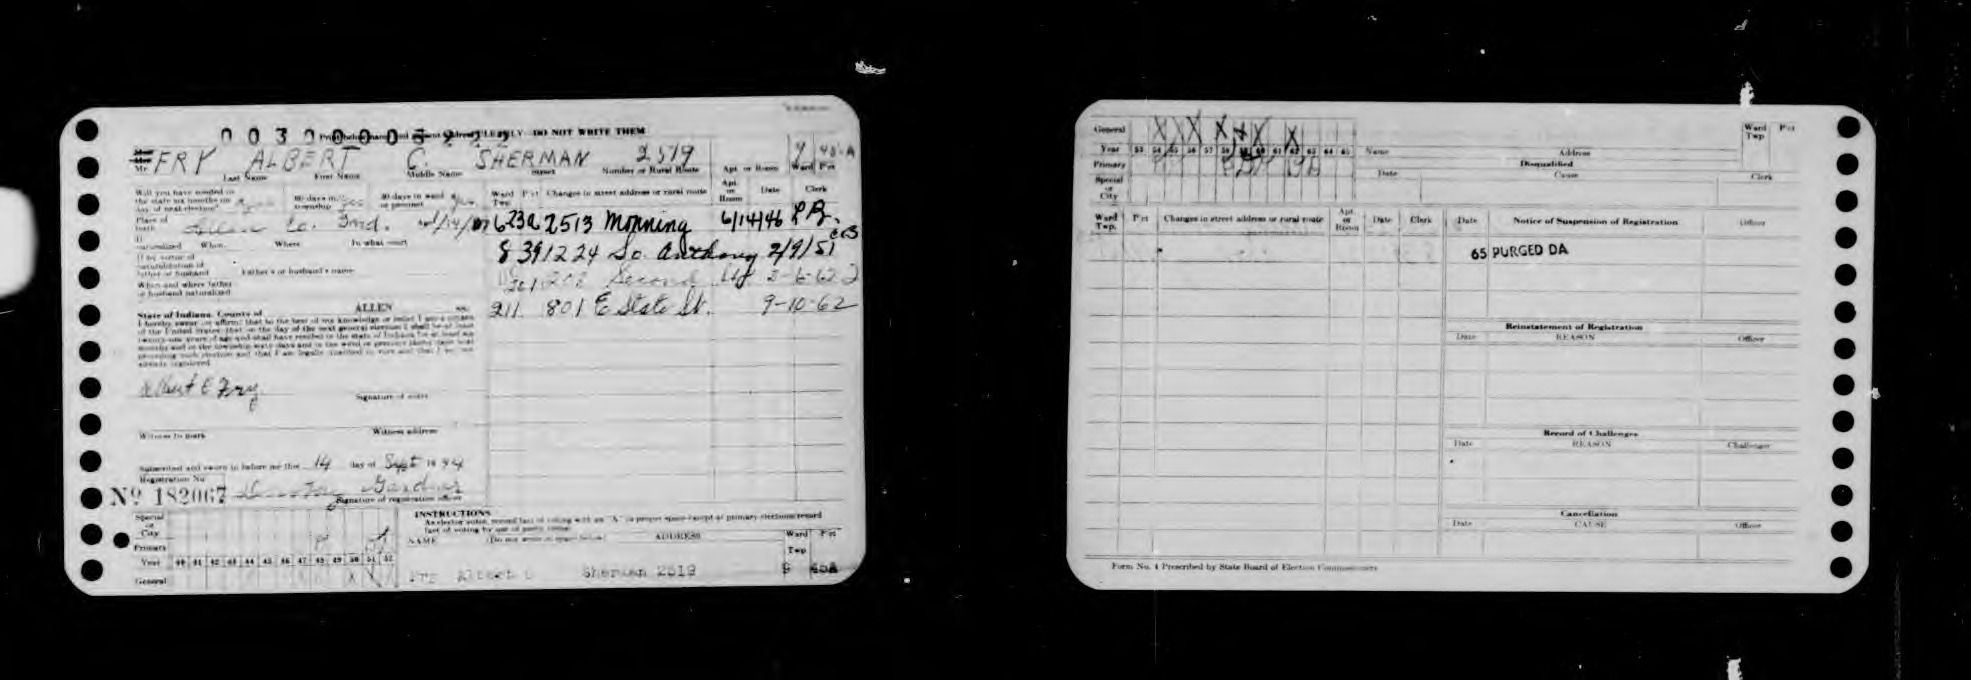 0 0 3 0 0 0 0 5 9 2 2 2
PLAINLY - DO NOT WRITE THEM
Mr. FRY ALBERT C. SHERMAN 2519 9 45-A
Last Name First Name Middle Name Street Number or Rural Route Apt. or Room Ward Pct
Will you have resided in the state six months on day of next election? yes 60 days in township yes 30 days in ward or precinct yes
Ward Twp. Pct Changes in street address or rural route Apt. or Room Date Clerk
Place of birth Allen Co. Ind.
6 23A 2513 Morning 6/14/46
If naturalized When Where In what court
8 39 1224 So. Anthony 2/9/51
If by virtue of naturalization of father or husband Father's or husband's name
202 Second 3-6-62
When and where father or husband naturalized
211 801 E State St. 9-10-62
State of Indiana, County of ALLEN ss:
I hereby swear or affirm that to the best of my knowledge or belief I am a citizen
of the United States; that on the day of the next general election I shall be at least
twenty-one years of age and shall have resided in the state of Indiana for at least six
months and in the township sixty days and in the ward or precinct thirty days next
preceding such election and that I am legally qualified to vote and that I am not
already registered
Albert C Fry
Signature of voter
Witness to mark Witness address
Subscribed and sworn to before me this 14 day of Sept 1944
Registration No.
No 182067 Gardner
Signature of registration officer
INSTRUCTIONS
As elector votes, record fact of voting with an "X" in proper space except at primary elections record
fact of voting by use of party initial
Special or City
Primary
Year 40 41 42 43 44 45 46 47 48 49 50 51 52
General X
NAME (Do not write in space below) ADDRESS Ward Twp Pct
Fry Albert C Sherman 2519 9 45A
General X X X X X X X
Year 53 54 55 56 57 58 59 60 61 62 63 64 65
Primary
Special or City
Name Address Ward Twp Pct
Disqualified
Date Cause Clerk
Ward Twp. Pct Changes in street address or rural route Apt. or Room Date Clerk
Date Notice of Suspension of Registration Officer
65 PURGED DA
Reinstatement of Registration
Date REASON Officer
Record of Challenges
Date REASON Challenger
Cancellation
Date CAUSE Officer
Form No. 4 Prescribed by State Board of Election Commissioners